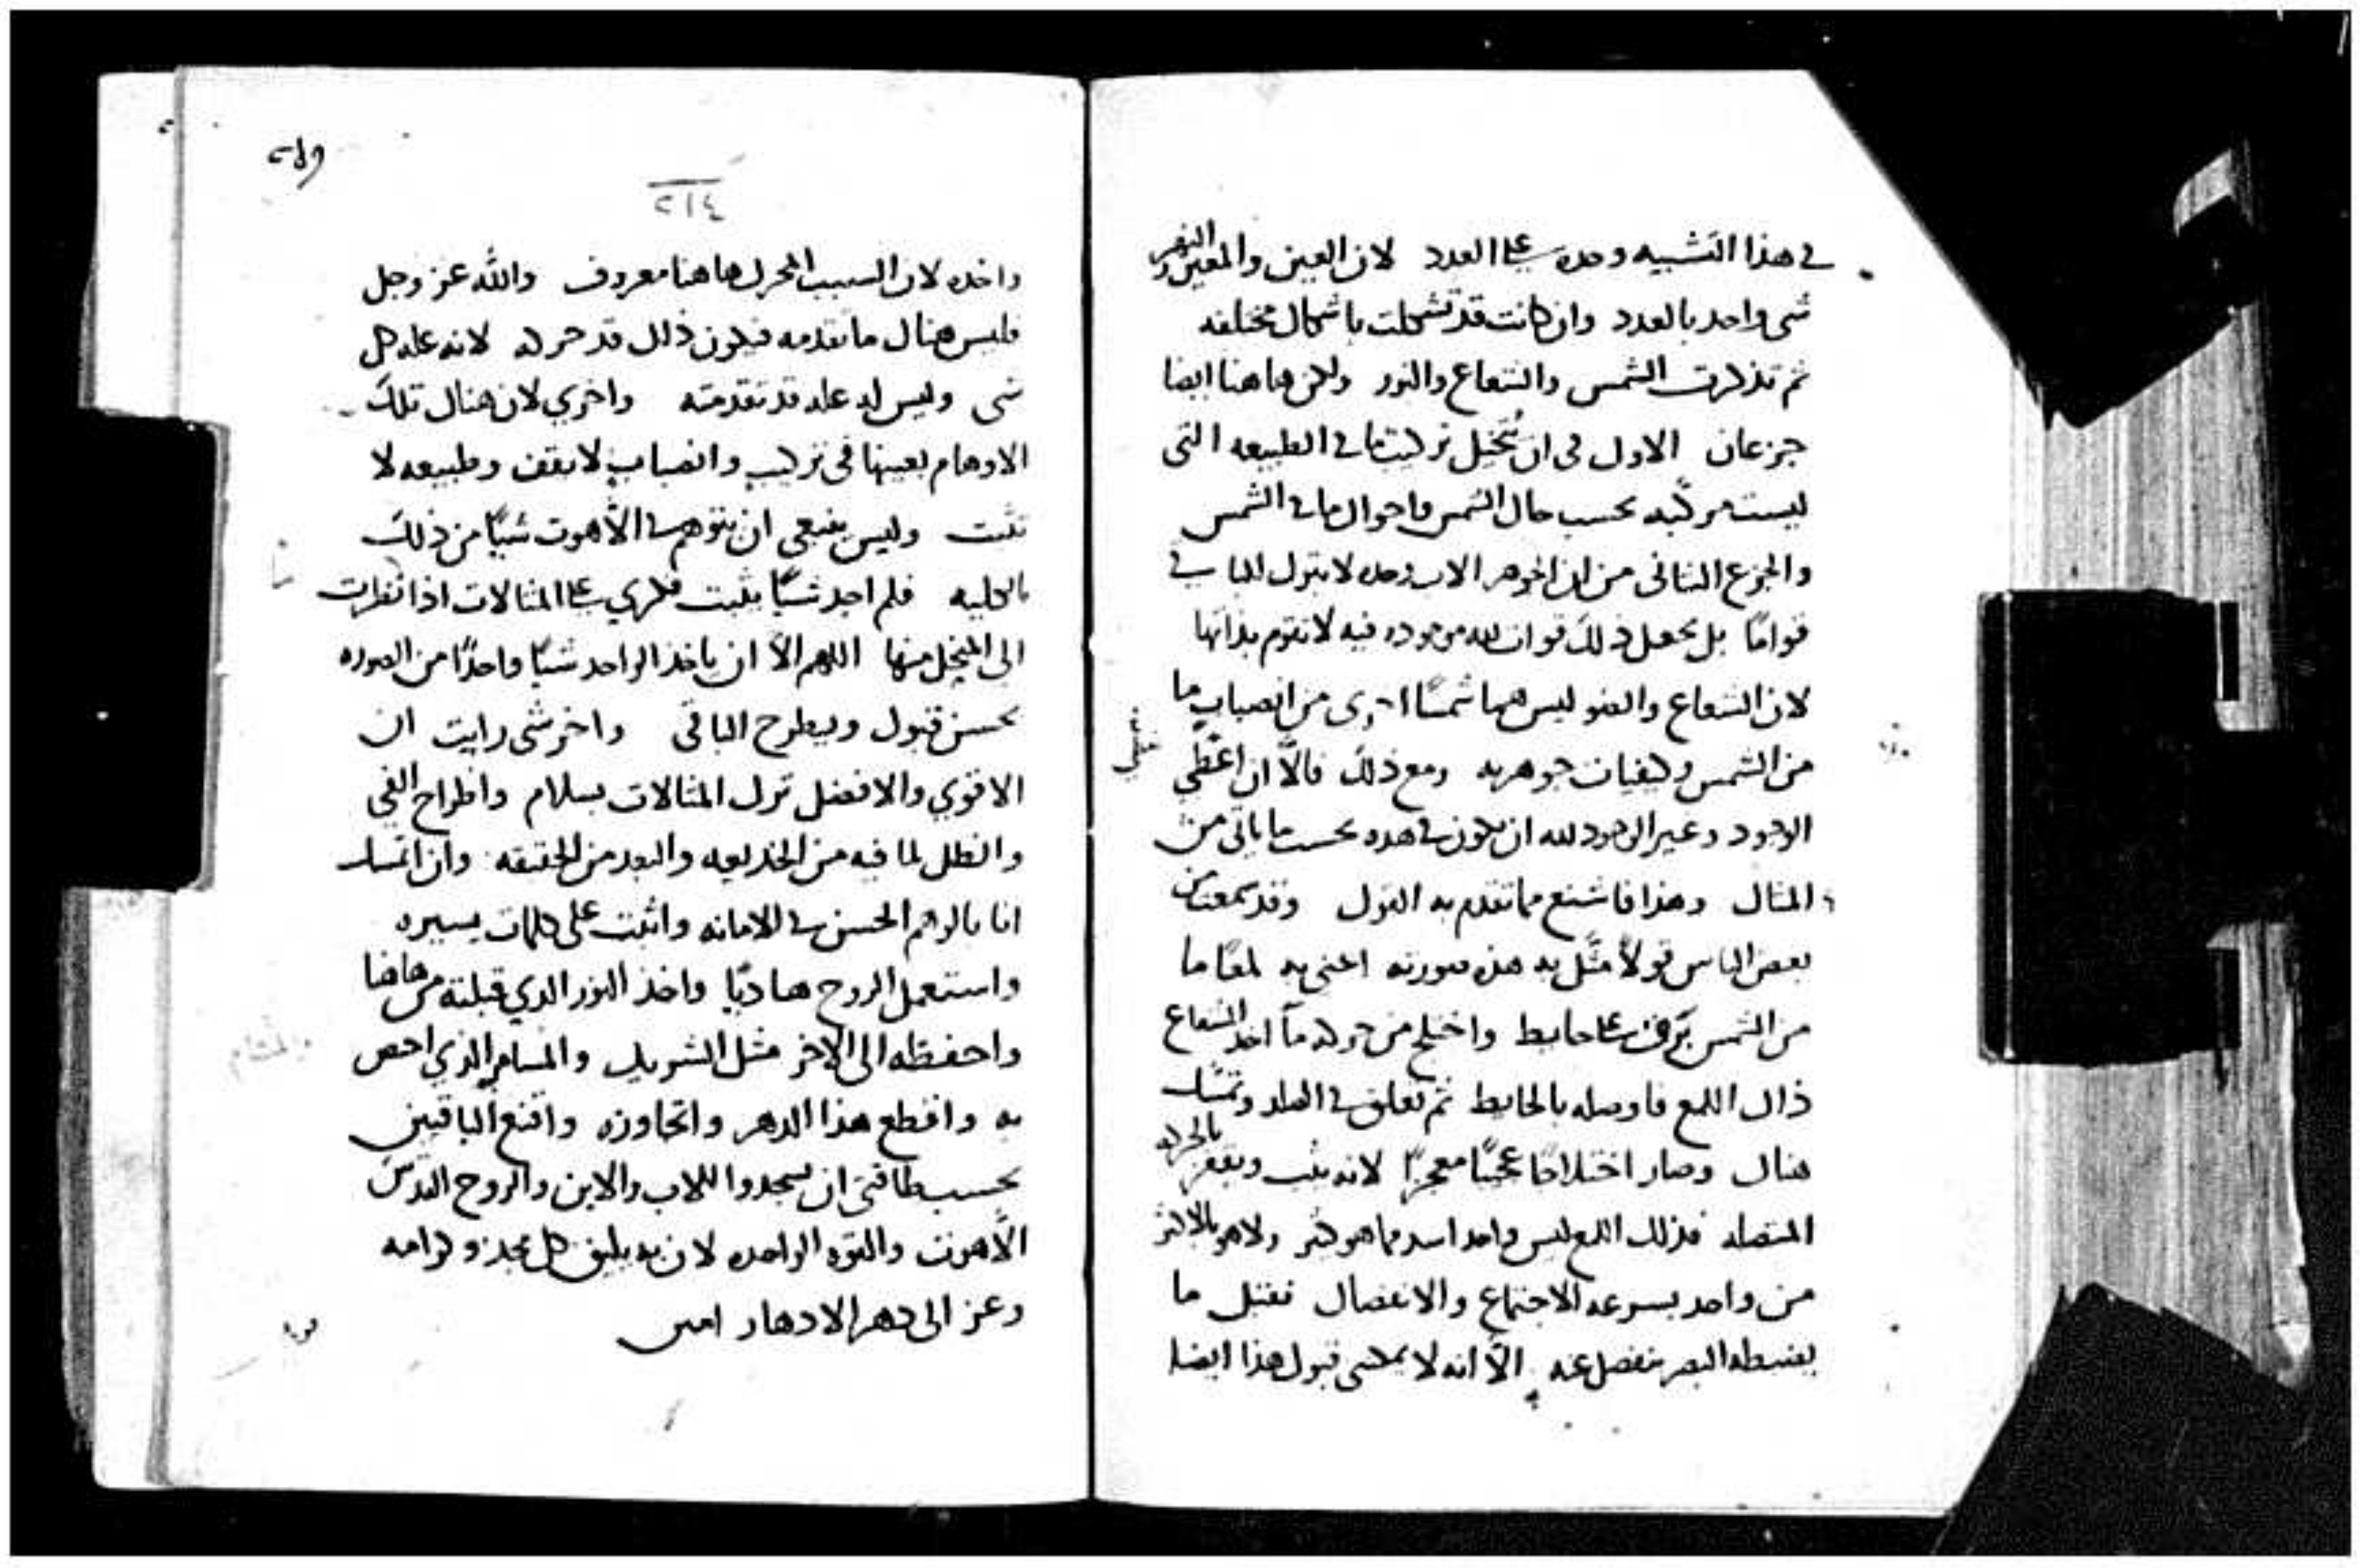 في هذا التشبيه وحده على العدد لان العين والمعين والنهر
شي واحد بالعدد وان كانت قد تشكلت باشكال مختلفه
ثم تذكرت الشمس والشعاع والنور ولكن هاهنا ايضا
جزعان الاول في ان تُتخيل تركيبًا ما في الطبيعه التي
ليست مركّبه بحسب حال الشمس واحوال ما في الشمس
والجزع الثاني من ان الجوهر الاب وحده لا الباقي
قوامًا بل يجعل ذلك قوات لله موجوده فيه لا تقوم بذاتها
لان الشعاع والضو ليس هما شمسًا اخرى من انصباب ما
من الشمس وكيفيات جوهريه ومع ذلك فالّا ان اعطي
الوجود وغير الوجود لله ان يكون في هذه بحسب ما ياتي من
المثال وهذا فاشنع مما تقدم به القول وقد سمعت من
بعض الناس قولاً مثّل به هذه صورته اعني به لمعًا ما
من الشمس برق على حايط واختلج من حركه ما اخذ الشعاع
ذاك اللمع فاوصله بالحايط ثم تعلق في
هناك وصار اختلاجًا عجيبًا معجزًا لانه يثب ويقفز بالحركه
المتصله فذلك اللمع ليس واحد اسد مما هو كثير ولا هو بالاكثر
من واحد بسرعه الاجتماع والانفصال فقبل ما
يضبطه البصر ينفصل عنه الّا انه لا يمكنني قبول هذا ايضا
٢١٤
واحده لان السبب المحرك هاهنا معروف والله عز وجل
فليس هناك ما تقدمه فيكون ذلك قد حركه لانه عله كل
شي وليس له عله قد تقدمته واخرى لان هناك تلك
الاوهام بعينها في تركيب وانصباب لا يقف وطبيعه لا
تثبت وليس ينبغي ان يتوهم في اللّاهوت شيًا من ذلك
بالكليه فلم اجد شيًا يثبت فكري على المثالات اذا نظرت
الى المتخيل منها اللهم الّا ان ياخذ الواحد شيًا واحدًا من الصوره
بحسن قبول ويطرح الباقي واخر شي رايت ان
الاقوي والافضل ترك المثالات بسلام واطراح الفي
والظل لما فيه من الخديعه والبعد من الحقيقه وان اتمسك
انا بالوهم الحسن في الامانه واثبت على كلمات يسيره
واستعمل الروح هاديًا واخذ النور الذي قبلته من هاهنا
واحفظه الى الاخر مثل الشريك والمسامر الذي اخص
به واقطع هذا الدهر واتجاوزه واقنع الباقيين
بحسب طاقتي ان يسجدوا للاب والابن والروح القدس
اللّاهوت والقوه الواحده لان به يليق كل مجد وكرامه
وعز الى دهر الادهار امين